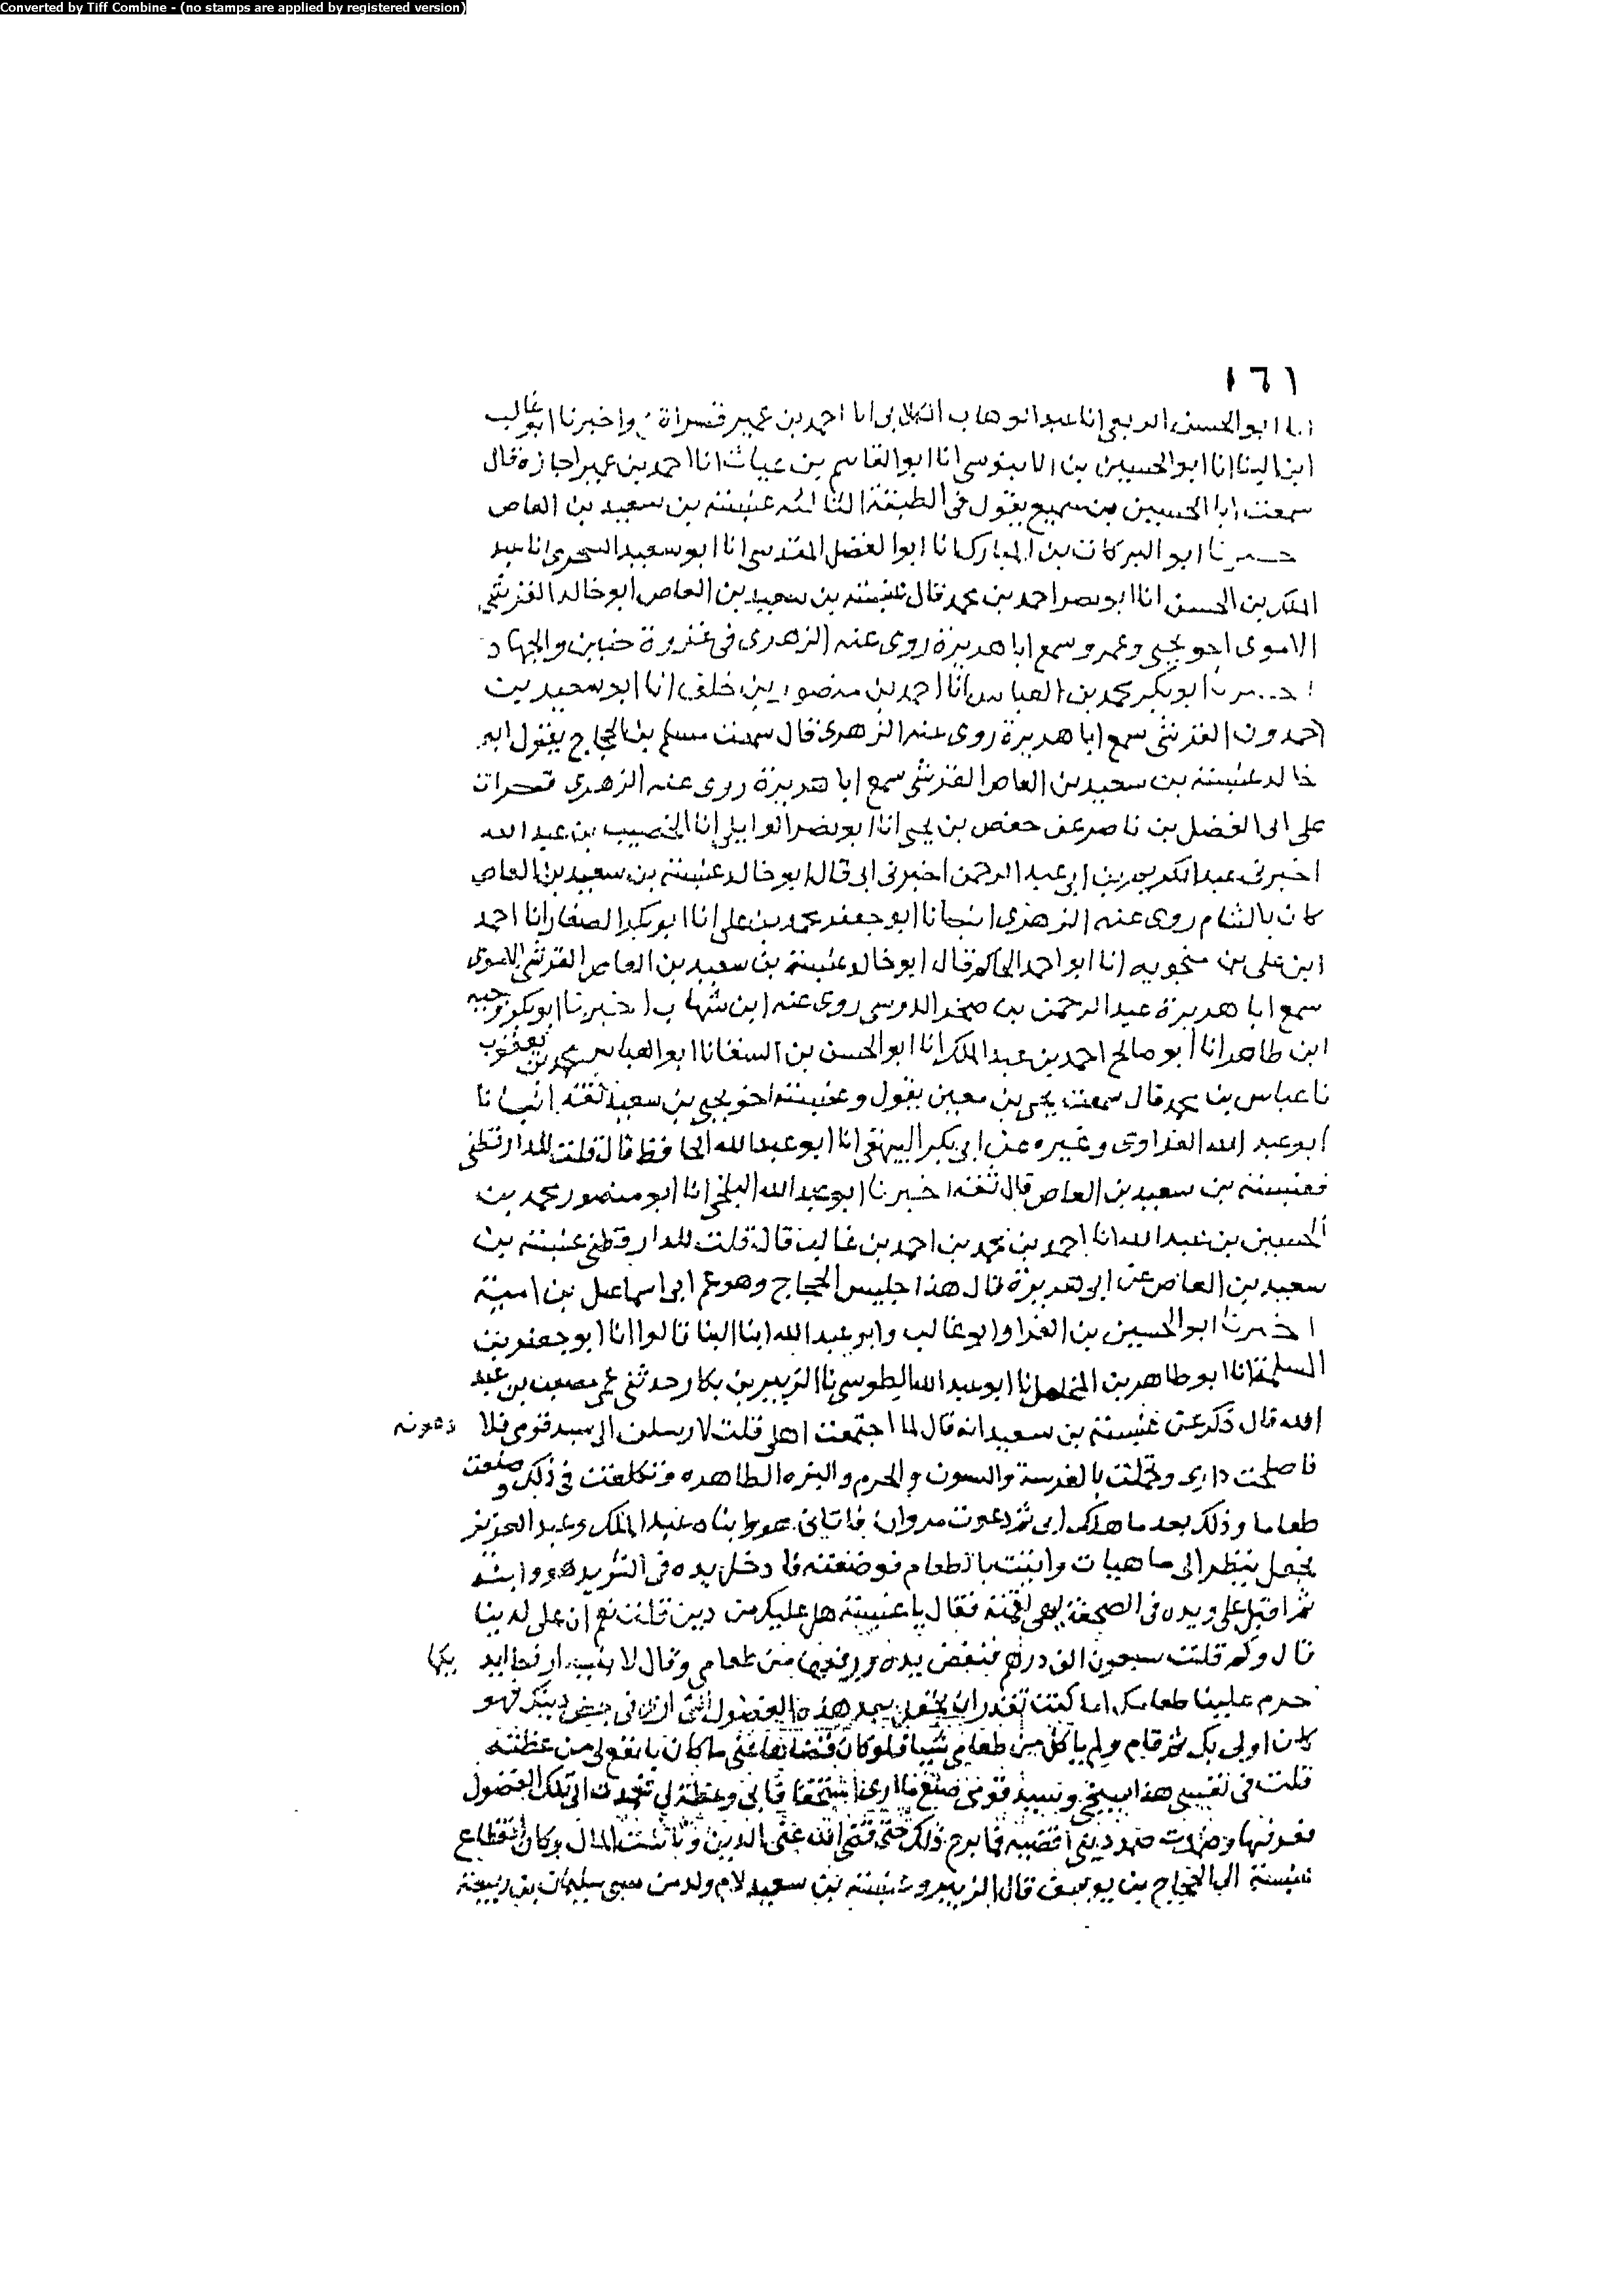 Converted by Tiff Combine - (no stamps are applied by registered version)
١٦١
انا ابو الحسن الربعي انا عبد الوهاب الكلابي انا احمد بن عمير قراة واخبرنا ابو غالب
ابن البنا انا ابو الحسين بن الابنوسي انا ابو القاسم بن عتاب انا احمد بن عمير اجازة قال
سمعت ابا الحسين بن سميع يقول في الطبقة الثالثة عنبسة بن سعيد بن العاص
اخبرنا ابو البركات بن المبارك انا ابو الفضل المقدسي انا ابو سعيد السجزي انا عبد
الملك بن الحسن انا ابو نصر احمد بن محمد قال عنبسة بن سعيد بن العاص ابو خالد القرشي
الاموي اخو يحيى وعمرو سمع ابا هريرة روى عنه الزهري في غزوة حنين والجهاد
اخبرنا ابو بكر محمد بن العباس انا احمد بن منصور بن خلف انا ابو سعيد بن
حمدون القرشي سمع ابا هريرة روى عنه الزهري قال سمعت مسلم بن الحجاج يقول ابو
خالد عنبسة بن سعيد بن العاص القرشي سمع ابا هريرة روى عنه الزهري قرات
على ابي الفضل بن ناصر عن جعفر بن يحيى انا ابو نصر الوايلي انا الخصيب بن عبد الله
اخبرني عبد الكريم بن ابي عبد الرحمن اخبرني ابي قال ابو خالد عنبسة بن سعيد بن العاص
كان بالشام روى عنه الزهري انبانا ابو جعفر محمد بن علي انا ابو بكر الصفار انا احمد
ابن علي بن منجويه انا ابو احمد الحاكم قال ابو خالد عنبسة بن سعيد بن العاص القرشي الاموي
سمع ابا هريرة عبد الرحمن بن صخر الدوسي روى عنه ابن شهاب اخبرنا ابو بكر وجيه
ابن طاهر انا ابو صالح احمد بن عبد الملك انا ابو الحسن بن السقا نا ابو العباس محمد بن يعقوب
نا عباس بن محمد قال سمعت يحيى بن معين يقول وعنبسة اخو يحيى بن سعيد ثقة انبانا
ابو عبد الله الفراوي وغيره عن ابي بكر البيهقي انا ابو عبد الله الحافظ قال قلت للدارقطني
فعنبسة بن سعيد بن العاص قال ثقة اخبرنا ابو عبد الله البلخي انا ابو منصور محمد بن
الحسين بن عبد الله انا احمد بن محمد بن احمد بن غالب قال قلت للدارقطني عنبسة بن
سعيد بن العاص عن ابي هريرة قال هذا جليس الحجاج وهو عم ابي اسماعيل بن امية
اخبرنا ابو الحسين بن الفرا وابو غالب وابو عبد الله ابنا البنا قالوا انا ابو جعفر بن
المسلمة انا ابو طاهر بن المخلص انا ابو عبد الله الطوسي نا الزبير بن بكار حدثني عمي مصعب بن عبد
الله قال ذكر عن عنبسة بن سعيد انه قال لما اجتمعت اهلي قلت لارسلن الى سيد قومي فلا دعونه
فاصلحت داري وتجملت بالفرسة والستون والخرم والبزه الطاهره وتكلفت في ذلك وصنعت
طعاما وذلك بعد ما هلك ابي ثم دعوت مروان فاتاني هو وابناه عبد الملك وعبد العزيز
فجعل ينظر الى ما هيات واتيت بالطعام فوضعته فادخل يده في الثريد هو وابناه
ثم اقبل علي ويده في الصحفة لقمة فقال يا عنبسة هل عليك من دين قلت نعم ان علي لدينا
قال وكم قلت سبعون الف درهم فنفض يده ورفعها من طعامي وقال لابنيه ارفعا ايد يكما
حرم علينا طعامك اما كنت تقدر ان تجعل بعد هذه الفضول التي ارى في بعض دينك فهو
كان اولى بك ثم قام ولم ياكل من طعامي شيئا فلو كان قضاها عني ما كان بانفع لي من عظته
قلت في نفسي هذا شيخي وسيد قومي صنع ما ارى استخفافا بي وعظة لي فعمدت الى تلك الفضول
ففرقتها وصمدت صمد ديني اقضيه فما برح ذلك حتى قضى الله عني الدين وتاثلت المال وكان انقطاع
عنبسة الى الحجاج بن يوسف قال الزبير وعنبسة بن سعيد لام ولد من سبي سليمان بن ربيعة